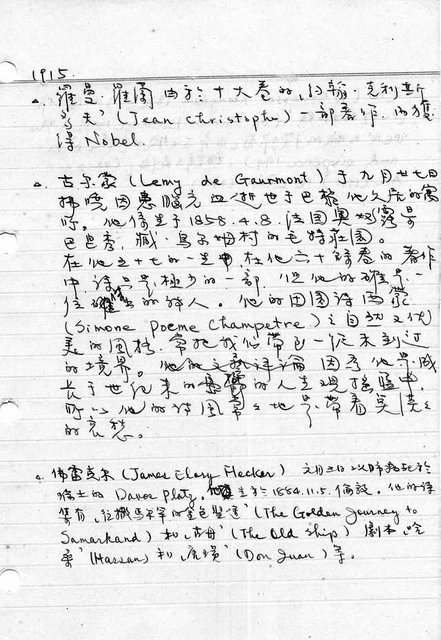 1915.
羅曼·羅蘭由於十大卷的「約翰·克利斯
多夫」(Jean Christophe) 一部著作，而獲
得 Nobel.
古尔蒙 (Lemy de Gaurmont) 于九月廿七日
拂曉因患腦充血逝世于巴黎他久居的寓
所。他係生于1858.4.8.法国奧
村的 莊園。
在他五十七的一生中，在他六十 卷的著作
中，詩只是極少的一部，但他的確是一
位 的詩人。他的田園詩西蒙
(Simone Poeme Champetre) 之自然又优
美的風格，常把我们帶在一從未到过
的境界。他的 評論因為他是成
長于世纪末的 的人生观摇 中，
所以他的詩風常之地是帶着莫法之
的哀愁。
佛雷克尔 (James Elory Flecker) 之月三日以肺病死於
瑞士的 Davos Platz. 他生於1884.11.5. 倫敦。他的詩
集有「往撒馬罕的金色 」(The Golden Journey to
Samarkand) 和「古舟」(The Old Ship) 劇本「哈
桑」(Hassan) 和「唐璜」(Don Juan) 等。